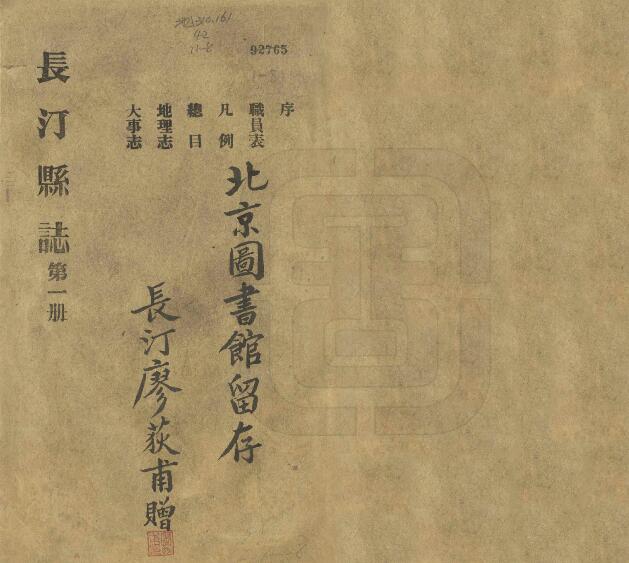 92765
1-8
序
職員表
凡例
總目
地理志
大事志
北京圖書館留存
長汀廖荻甫贈
長汀縣誌 第一册